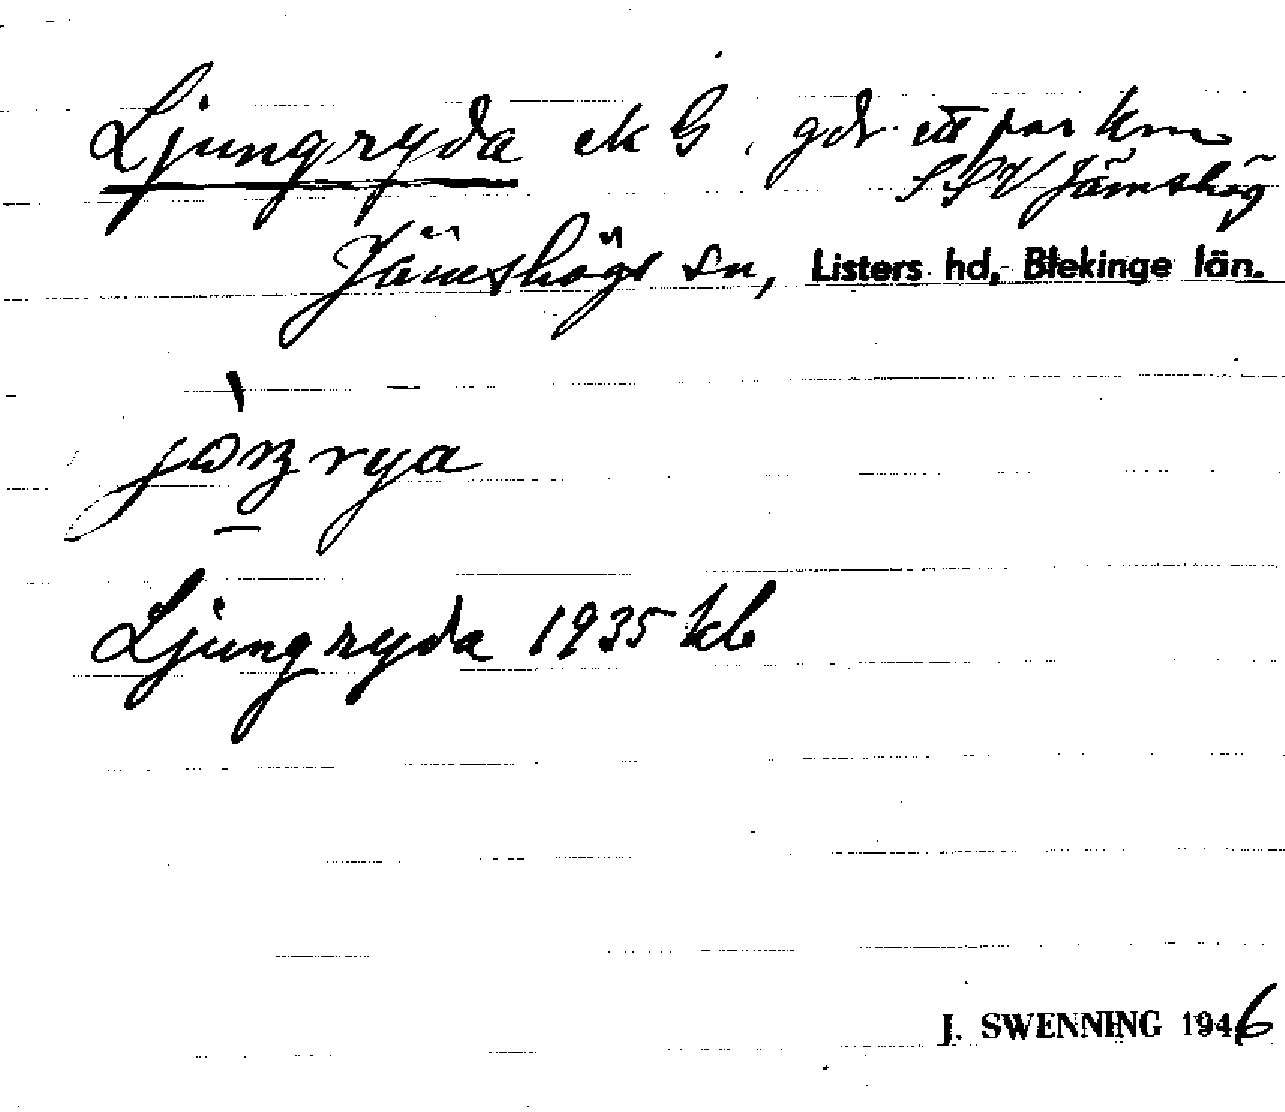 Ljungryda ek G, gdr ett par km
SSV Jämshög
Jämshögs sn, Listers hd, Blekinge län.
Ljungryda 1935 kb
J. SWENNING 1946